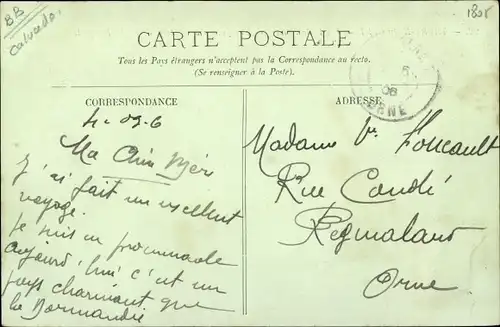 BB
Calvados
1808
CARTE POSTALE
Tous les Pays étrangers n'acceptent pas la Correspondance au recto.
(Se renseigner à la Poste).
CORRESPONDANCE
ADRESSE
4-09-6
Ma Chère Mère
J'ai fait un excellent
voyage.
Je suis en promenade
aujourd'hui c'est un
pays charmant que
la Normandie
Madame Vve Foucault
Rue Condé
Regmalard
Orne
06
ORNE